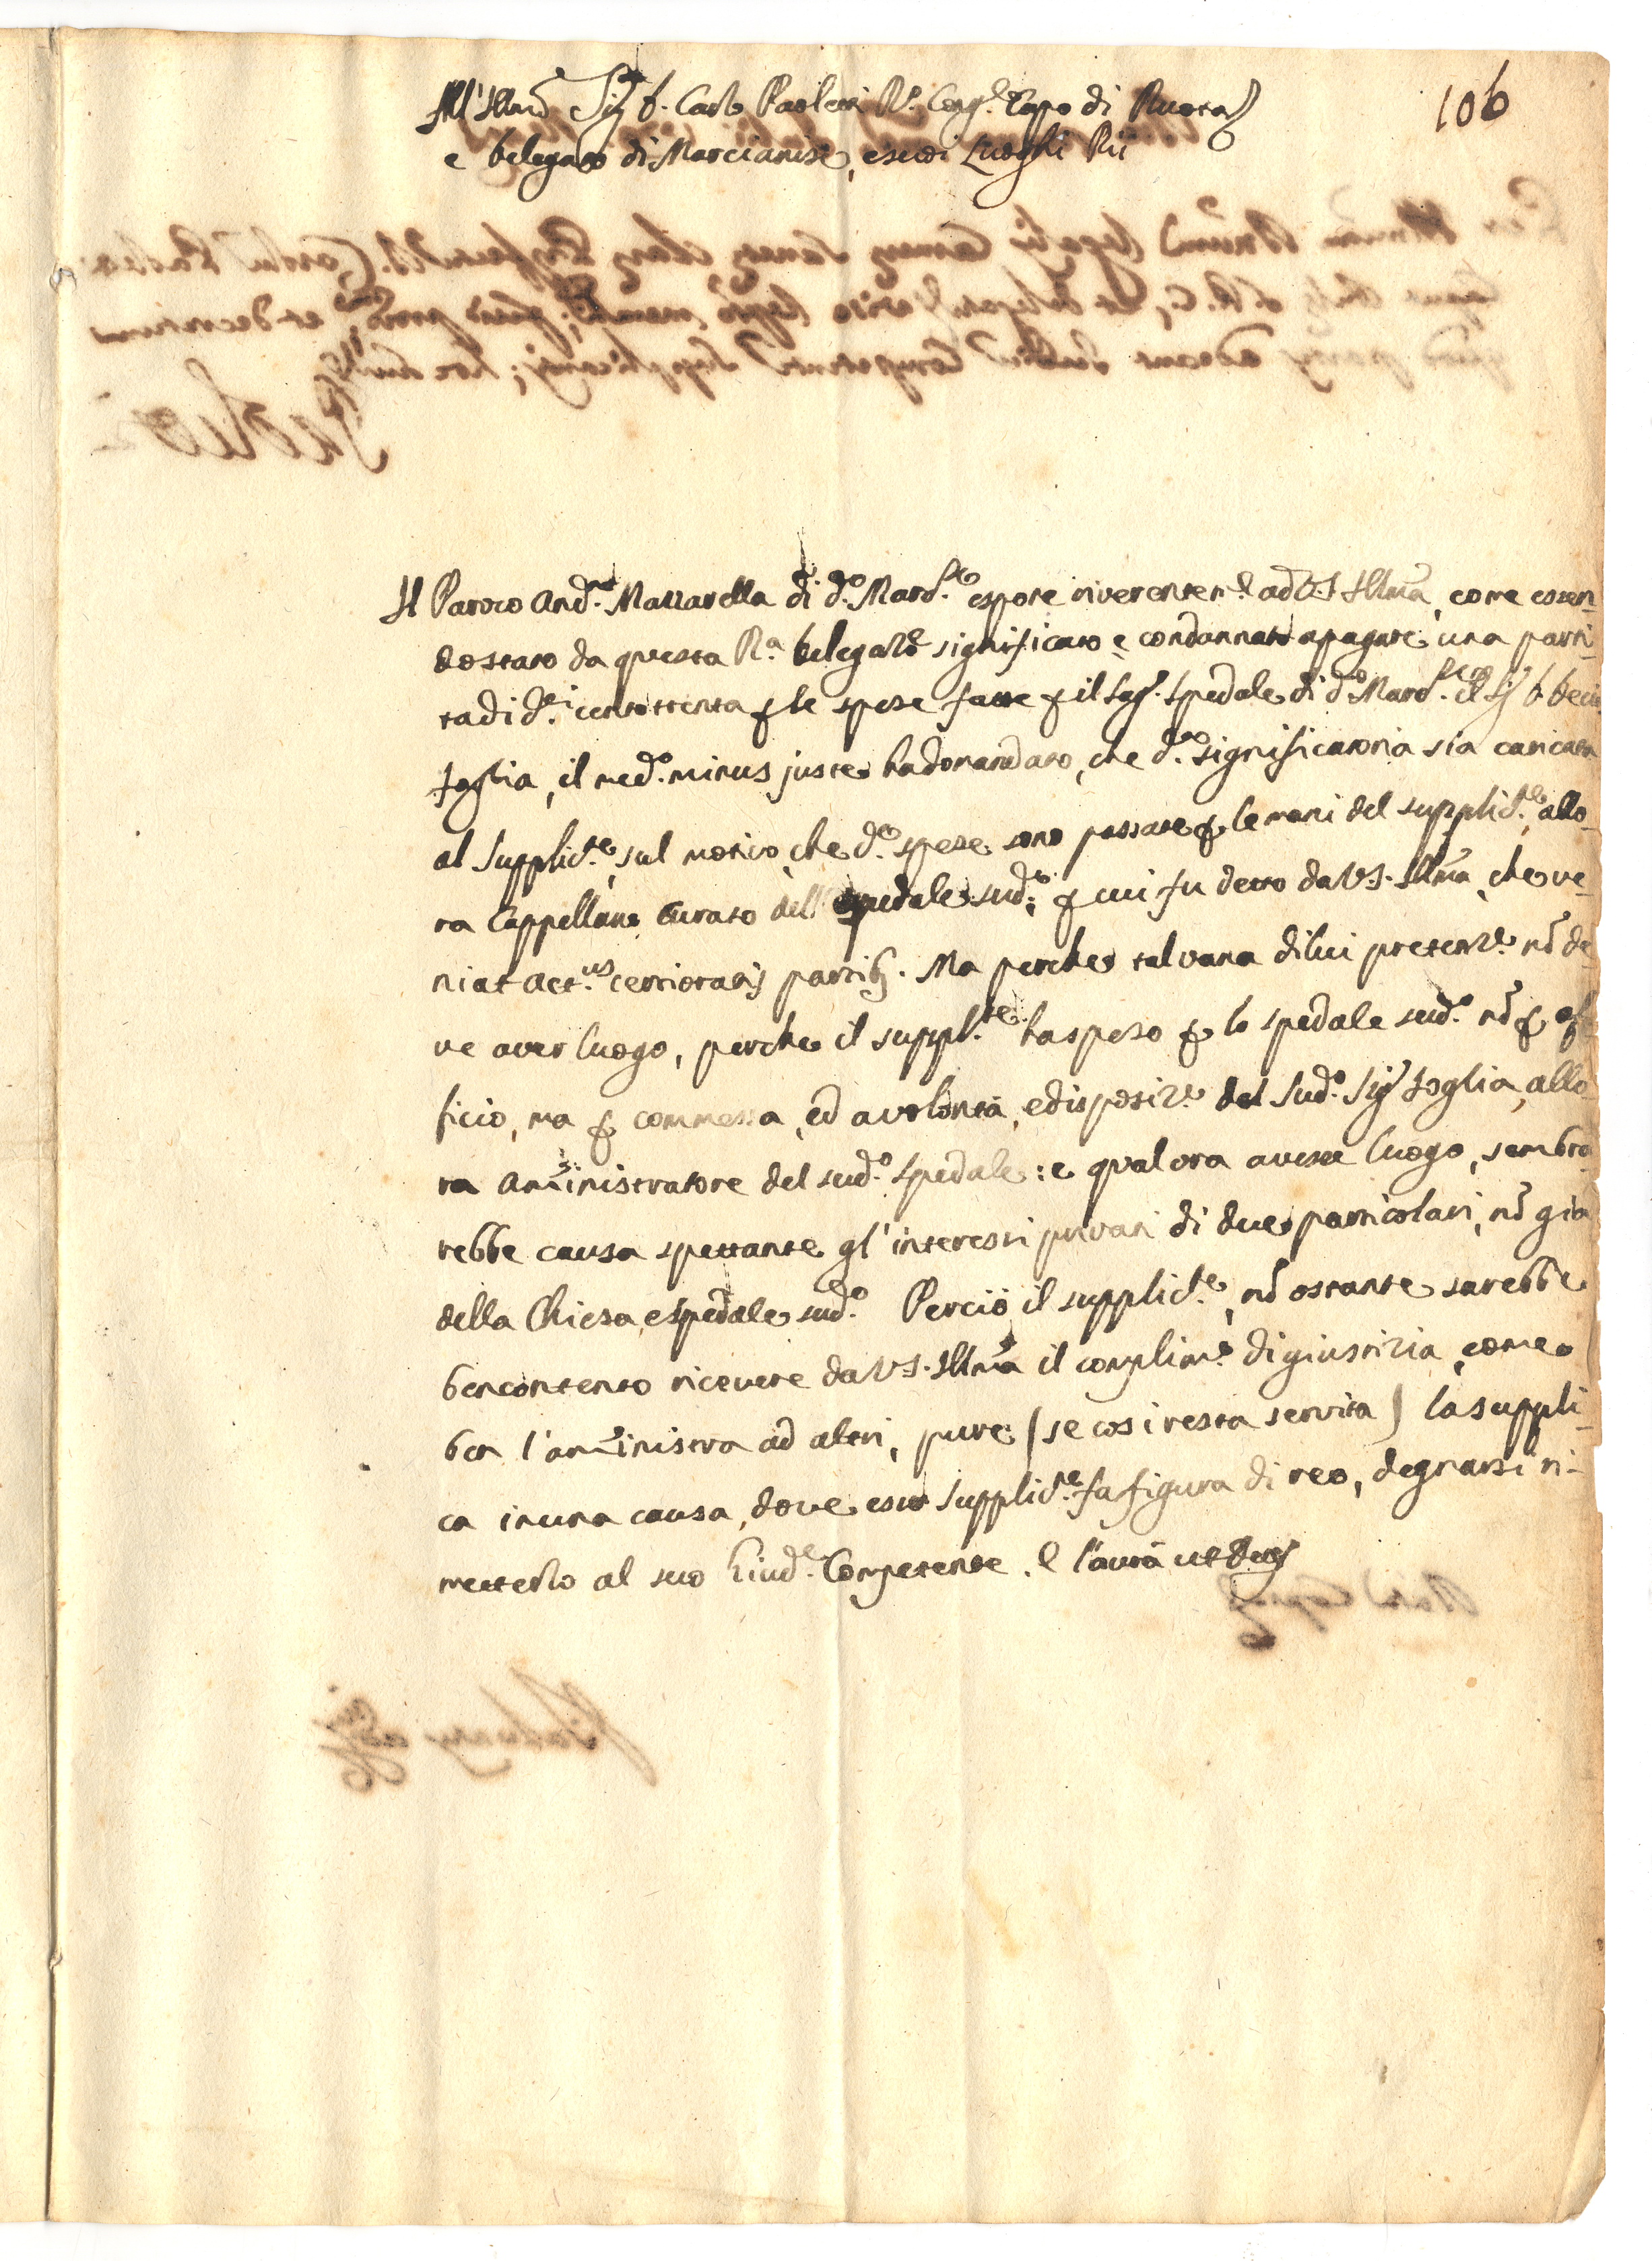 106
All'Illmo Sig.r D. Carlo Paoletti R.o Consig.re Capo di Ruota
e Delegato di Marcianise, e suoi Luoghi Pii
Il Paroco And.a Mazzarella di d.o Marc.se espone riverentem.e ad V.S. Illma, come essen-
do stato da questa R.a Delegaz.e significato e condannato a pagare una parti-
ta di d.i cento trenta p le spese fatte p il Spedale di d.o Marc.se il Sig.r D.
Foglia, il med.o minus juste ha domandato, che d.a significatoria sia caricata
al Supplic.te, sul motivo, che d.e spese sono passate p le mani del supplic.te, allo-
ra Cappellano Curato dell'Ospedale sud.o; p cui fu detto da V.S. Illma, che ve-
niat act.us certioratis partibus. Ma perche tal vana di lui pretenz.e nō de-
ve aver luogo, perche il suppl.te ha speso p lo spedale sud.o nō p of-
ficio, ma p commessa, ed a volontà, e disposiz.e del Sud.o Sig.r Foglia, allo-
ra Amministratore del sud.o Spedale: e qualora avesse luogo, sembra-
rebbe causa spettante gl'interessi privati di due particolari, nō già
della Chiesa, e Spedale sud.o Perciò il supplic.te, nō ostante sarebbe
ben contento ricevere da V.S. Illma il complim.o di giustizia, come
ben l'amministra ad altri, pure (se così resta servita) la suppli-
ca in una causa, dove esso Supplic.te fa figura di reo, degnarsi ri-
metterlo al suo Giud.e Competente. E l'avrà ut Deus